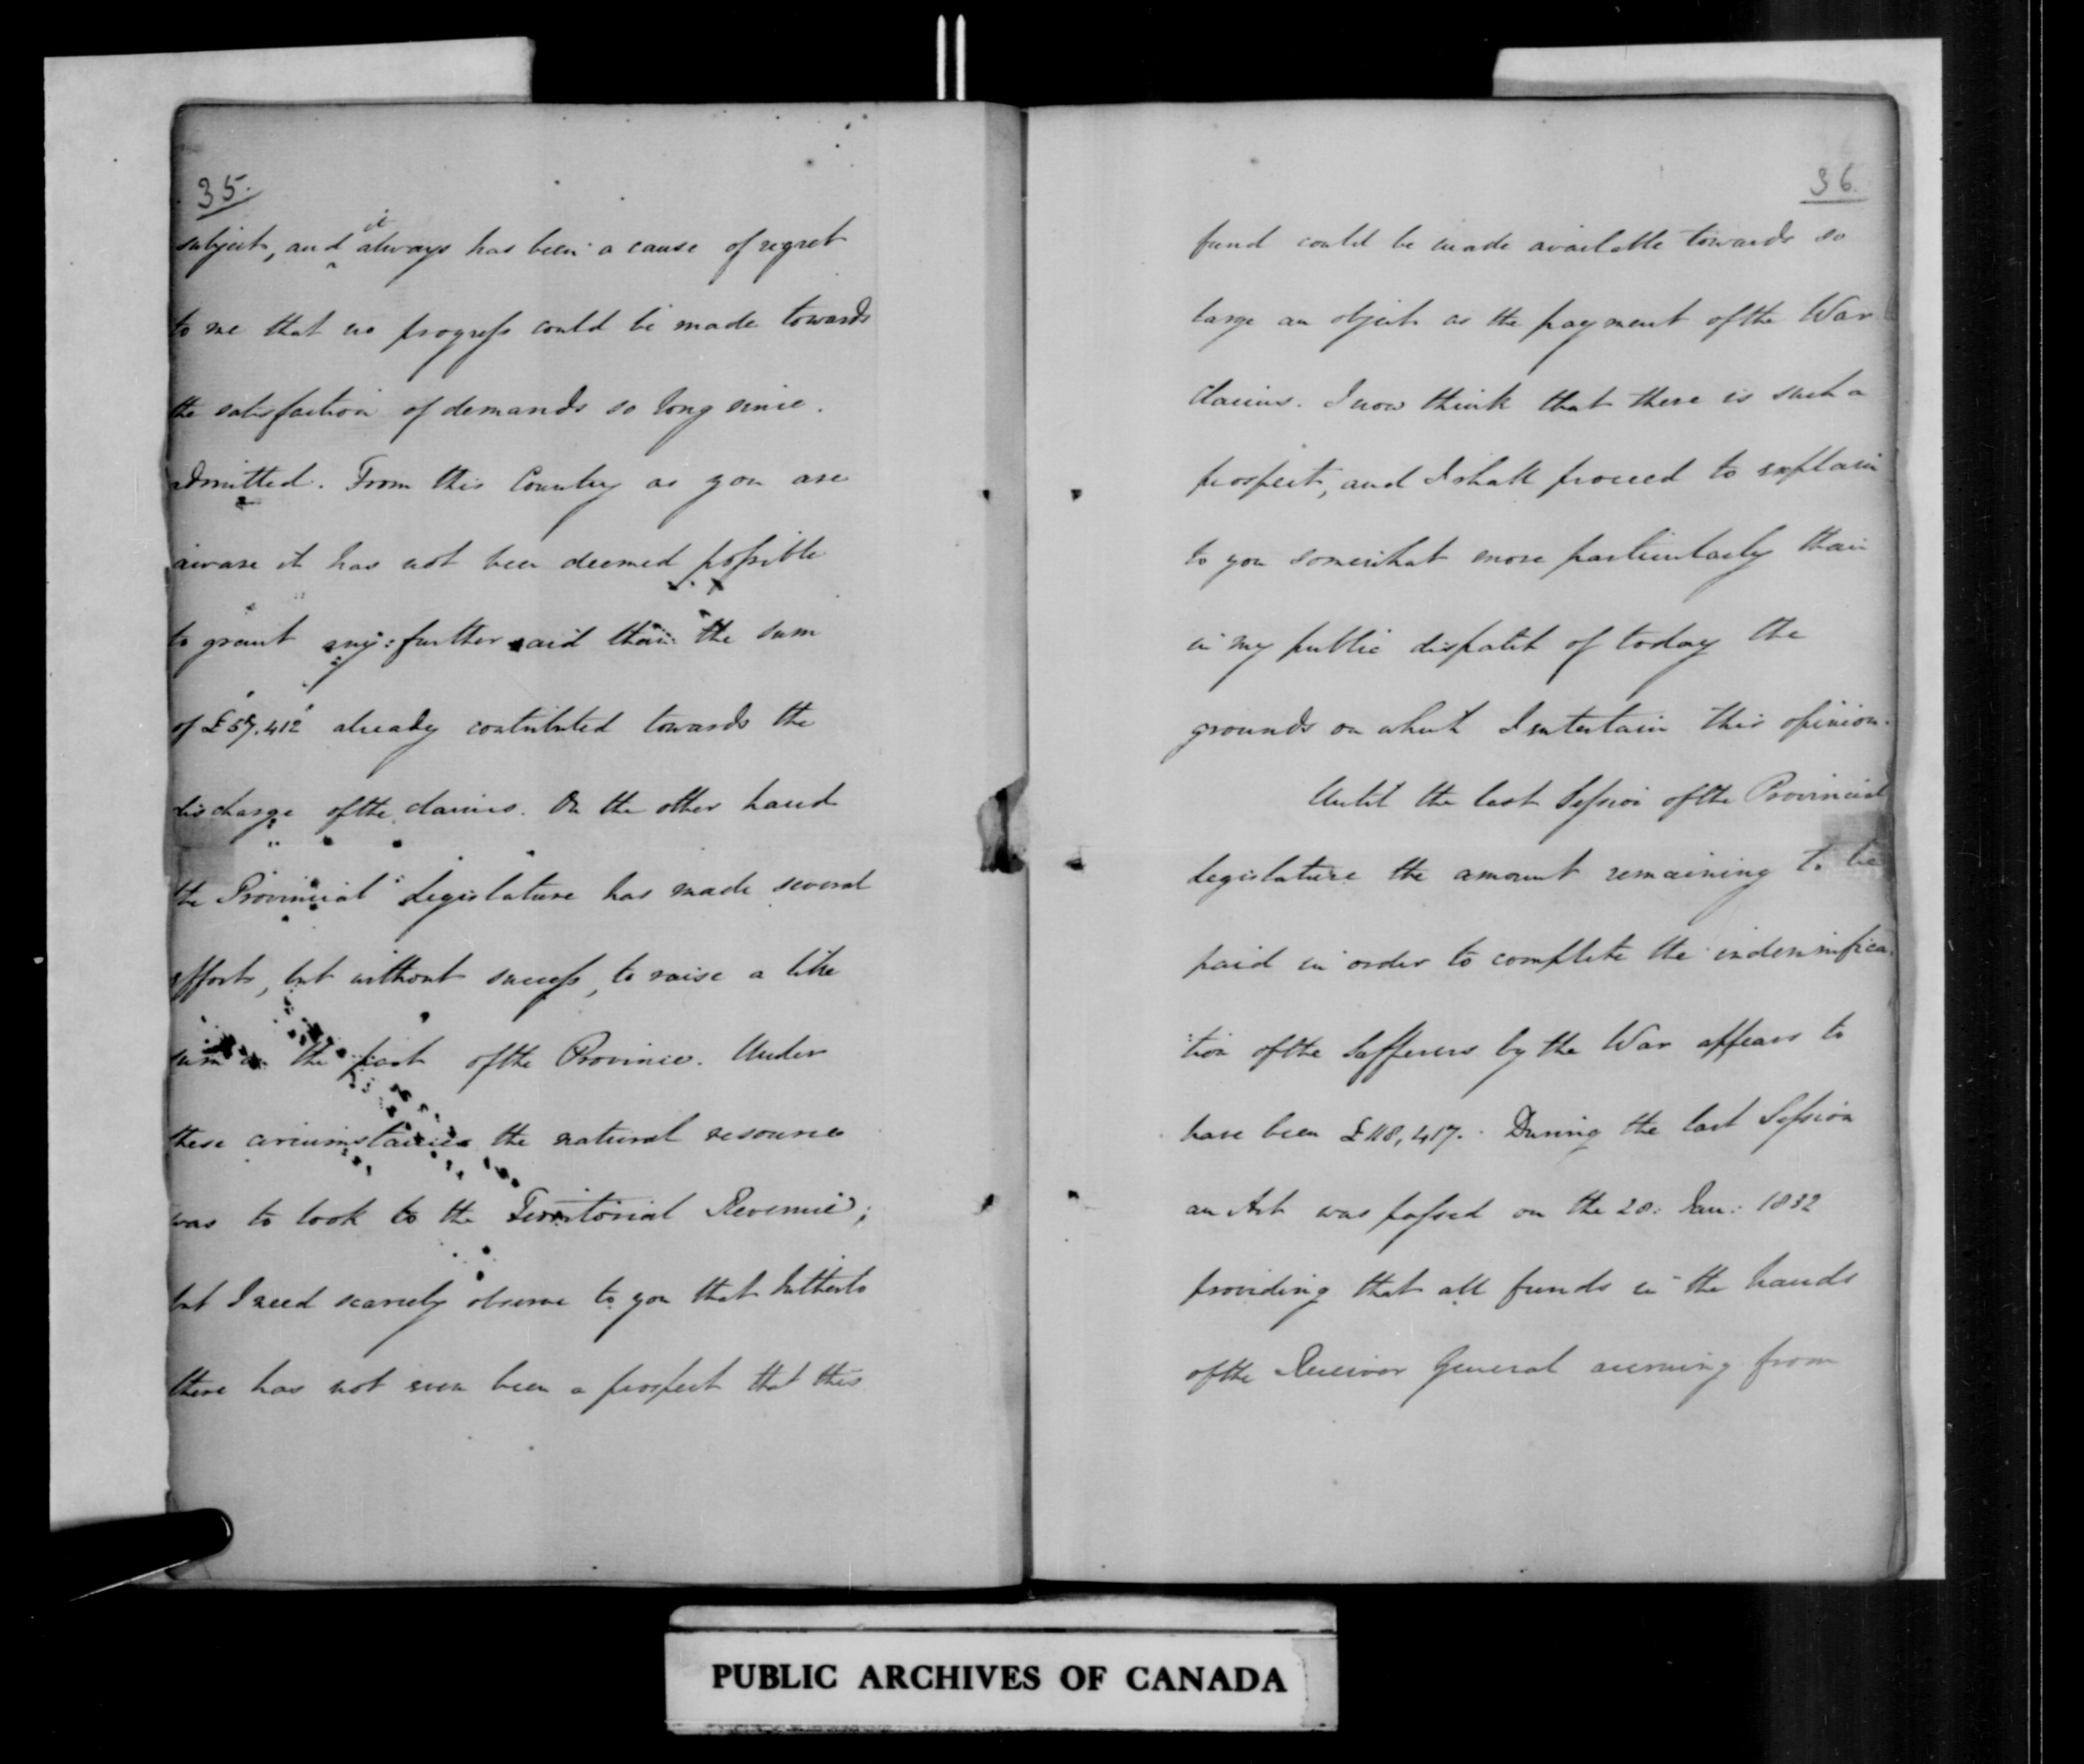 35.
subject, and it always has been a cause of regret
to me that no progress could be made towards
the satisfaction of demands so long since
admitted. From this Country as you are
aware it has not been deemed possible
to grant any further aid than the sum
of £57.412 already contributed towards the
discharge of the claims. On the other hand
the Provincial Legislature has made several
efforts, but without success, to raise a like
sum on the part of the Province. Under
these circumstances the natural resource
was to look to the Territorial Revenue;
but I need scarcely observe to you that hitherto
there has not even been a prospect that this
36.
fund could be made available towards so
large an object as the payment of the War
Claims. I now think that there is such a
prospect, and I shall proceed to explain
to you somewhat more particularly than
in my public dispatch of today the
grounds on which I entertain this opinion.
Until the last Session of the Provincial
Legislature the amount remaining to be
paid in order to complete the indemnifica-
:tion of the Sufferers by the War appears to
have been £118,417. During the last Session
an Act was passed on the 28: Jan: 1832
providing that all funds in the hands
of the Receiver General accruing from
PUBLIC ARCHIVES OF CANADA